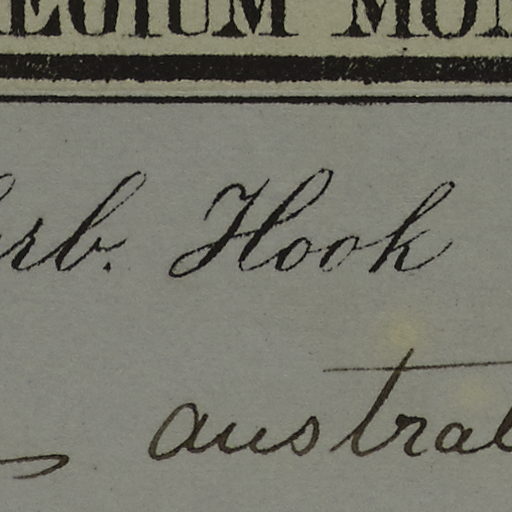 EGIUM MO
erb. Hook
austral